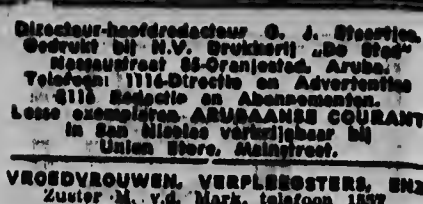 Directeur-hoofdredacteur G. J. Staartjes.
Gedrukt bij N.V. Drukkerij „De Stad"
Nassaustraat 85-Oranjestad, Aruba.
Telefoon: 1116-Directie en Advertenties
2116 Redactie en Abonnementen.
Losse exemplaren ARUBAANSE COURANT
in San Nicolas verkrijgbaar bij
Union Store, Mainstreet.
VROEDVROUWEN, VERPLEEGSTERS, ENZ
Zuster M. v.d. Mark, telefoon 1837